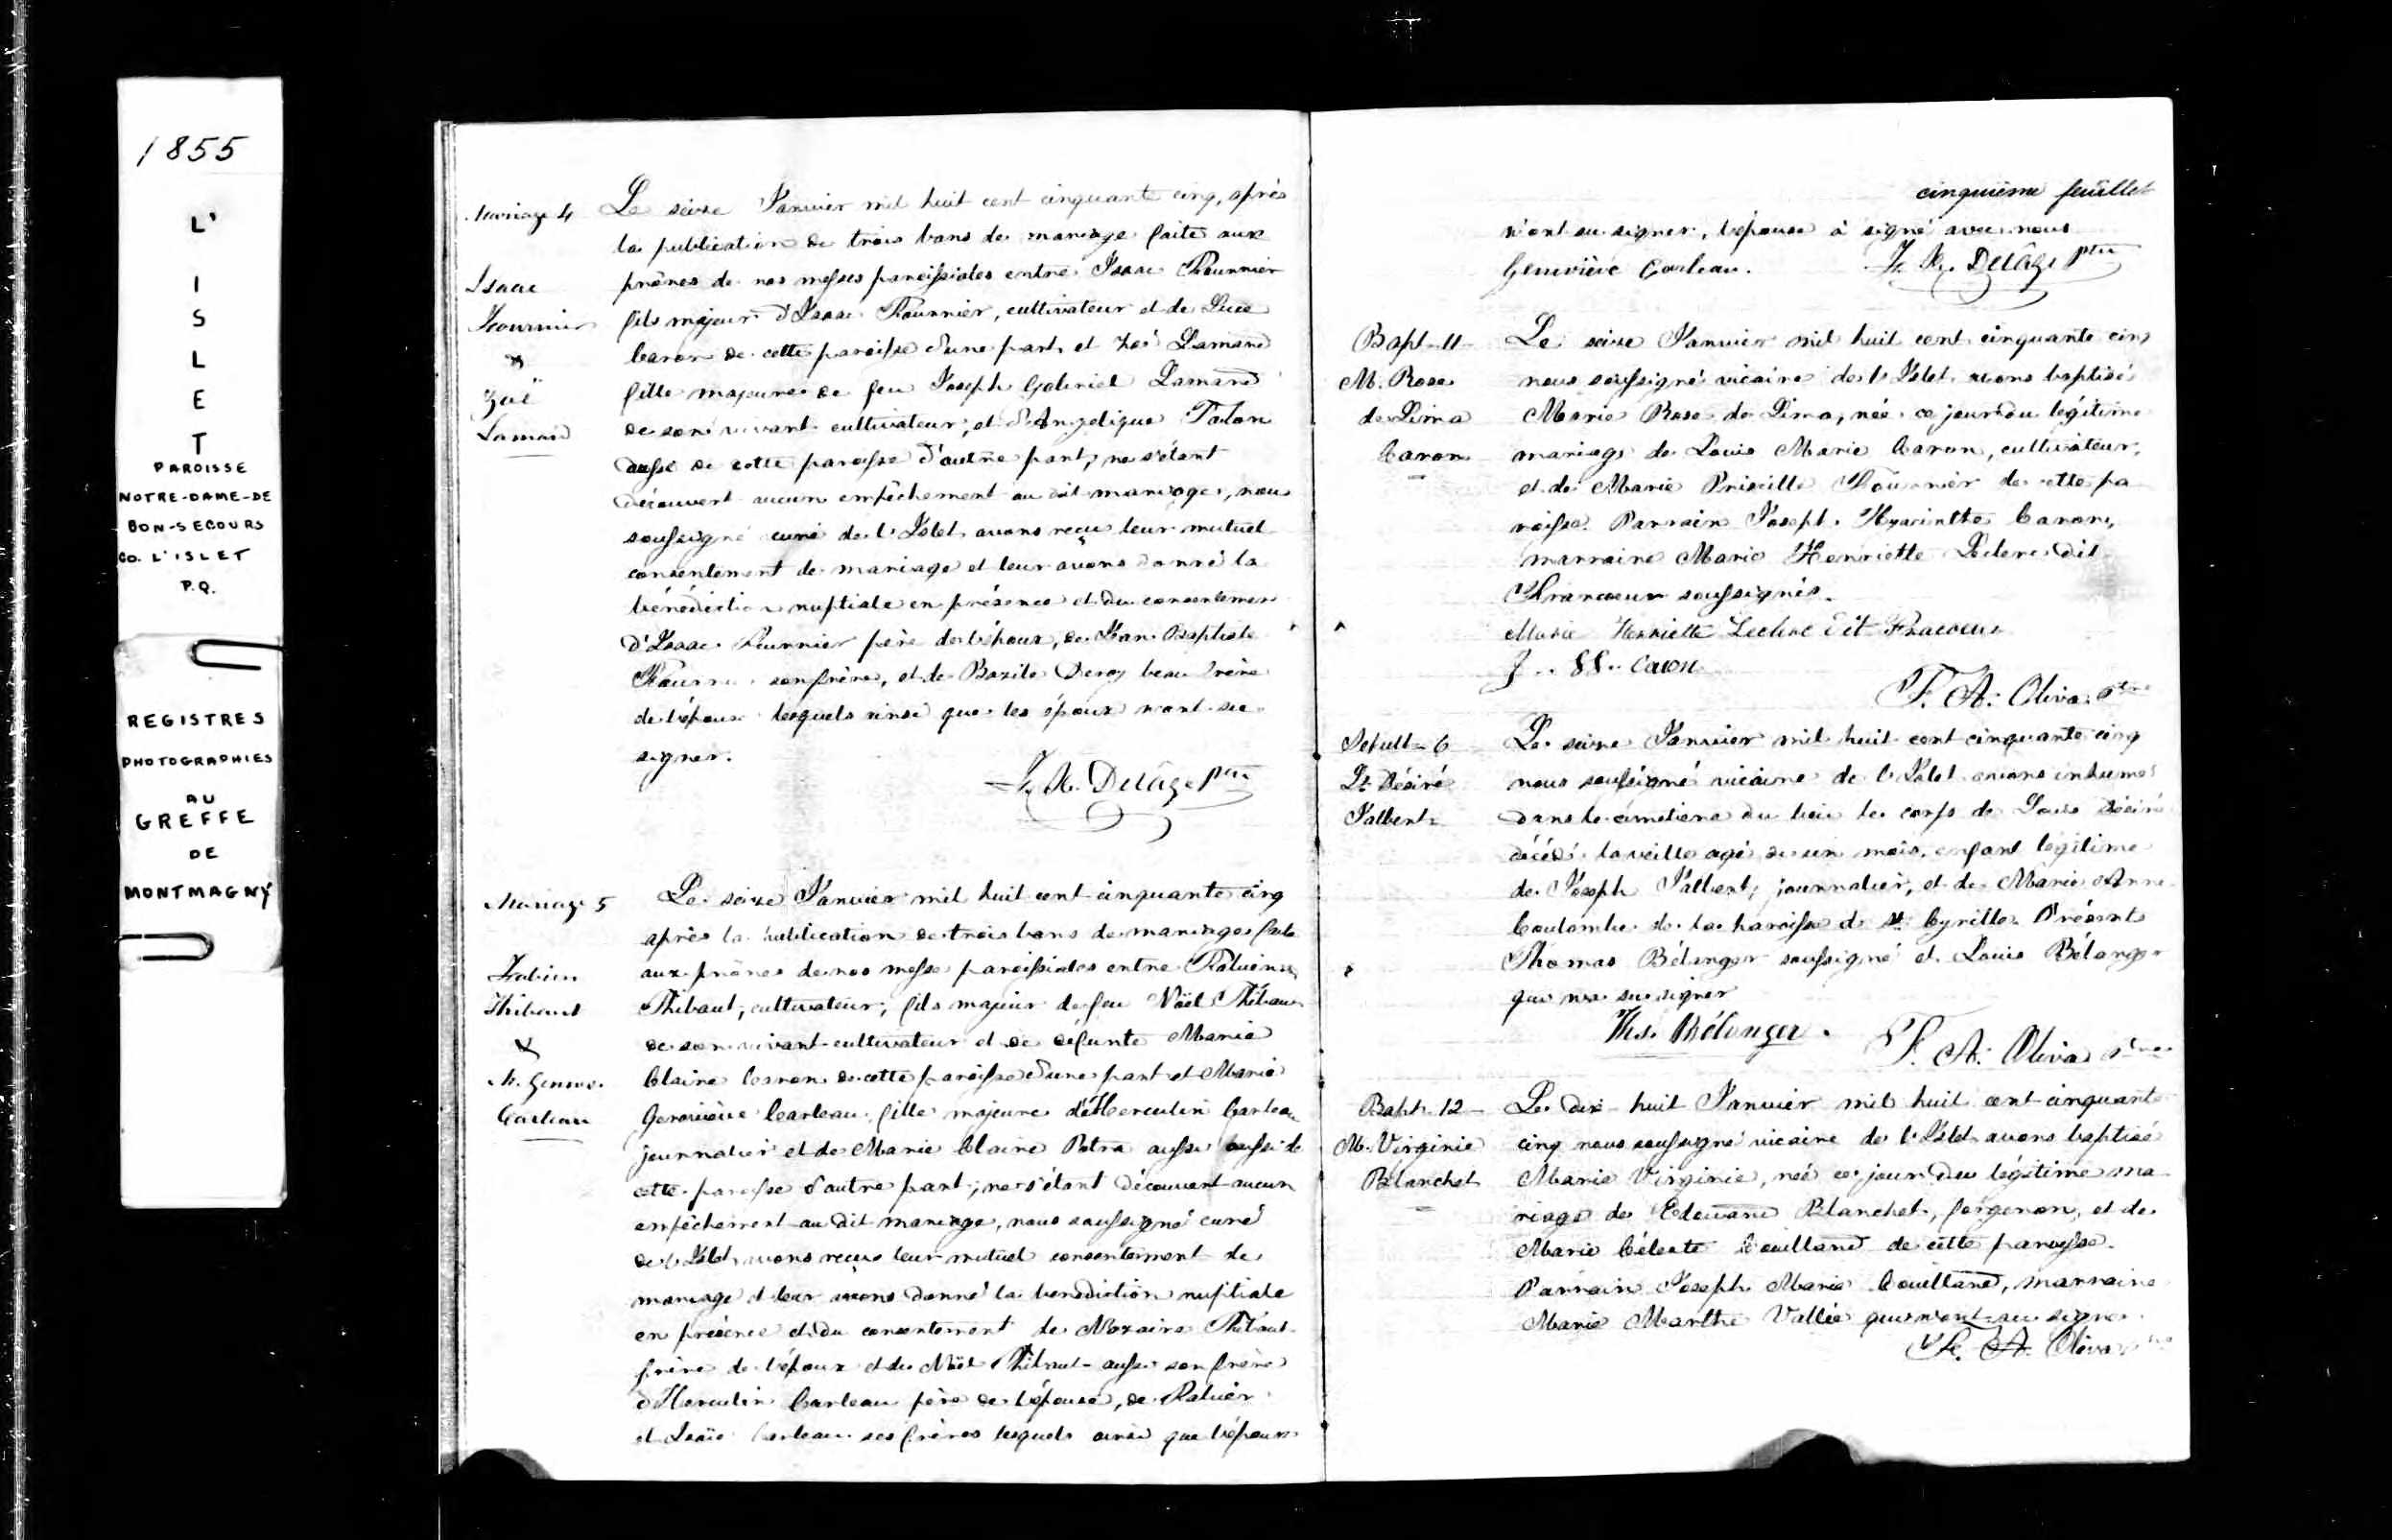 1855
L'
I
S
L
E
T
PAROISSE
NOTRE-DAME-DE
BON-SECOURS
CO. L'ISLET
P.Q.
REGISTRES
PHOTOGRAPHIES
AU
GREFFE
DE
MONTMAGNY
Mariage 4
Isaac
Fournier
&
Zoë
Lamard
Le seize Janvier mil huit cent cinquante cinq, après
la publication de trois bans de mariage faite aux
prônes de nos messes paroissiales entre Isaac Fournier
fils majeur d'Isaac Fournier, cultivateur et de Luce
Caron de cette paroisse d'une part, et Zoé Lamard
fille majeure de feu Joseph Gabriel Lamard
de son vivant cultivateur, et d'Angelique
aussi de cette paroisse d'autre part, ne s'étant
découvert aucun empêchement au dit mariage, nous
soussigné curé de l'Islet avons reçu leur mutuel
consentement de mariage et leur avons donné la
bénédiction nuptiale en présence et du consentemen
d'Isaac Fournier père de l'époux, de Jean Baptiste
son frère, et de Bazile beau frère
de l'épouse lesquels ainsi que les époux n'ont su
signer.
Delâge Ptre
Mariage 5
Fabien
Thibaut
&
M. Genev.
Carleau
Le seize Janvier mil huit cent cinquante cinq
après la publication de trois bans de mariage faite
aux prônes de nos messes paroissiales entre
Thibaut, cultivateur, fils majeur de feu Noël Thibaut
de son vivant cultivateur et de défunte Marie
Claire de cette paroisse d'une part et Marie
Geneviève Carleau fille majeure d'Herculin Carleau
journalier et de Marie Claire aussi aussi de
cette paroisse d'autre part, ne s'étant découvert aucun
empêchement au dit mariage, nous soussigné curé
de l'Islet avons reçu leur mutuel consentement de
mariage et leur avons donné la benediction nuptiale
en présence et du consentement de Nazaire Thibaut
frère de l'époux et de Noël Thibaut aussi son frère
d'Herculin Carleau père de l'épouse, de
et Isaïe Carleau ses frères lesquels ainsi que l'époux
cinquième feuillet
n'ont su signer, l'épouse a signé avec nous
Geneviève Carleau. Delâge Ptre
Bapt. 11
M. Rose
de Lima
Caron
Le seize Janvier mil huit cent cinquante cinq
nous soussigné vicaire de l'Islet avons baptisé
Marie Rose de Lima, née ce jour du légitime
mariage de Louis Marie Caron, cultivateur,
et de Marie Priscille Fournier de cette pa
roisse. Parrain Joseph Hyacinthe Caron,
marraine Marie Henriette Leclerc dit
Francoeur soussignés.
Marie Henriette Leclerc dit Fracoeur
J. H. Caron
F. A. Oliva Ptre
Sépult. 6
Ls Désiré
Jalbert
Le seize Janvier mil huit cent cinquante cinq
nous soussigné vicaire de l'Islet avons inhumé
dans le cimetière du lieu le corps de Louis Désiré
décédé la veille agé de un mois, enfant légitime
de Joseph Jalbert, journalier, et de Marie Anne
Coulombe de la paroisse de St Cyrille. Présents
Thomas Bélanger soussigné et Louis Bélanger
qui n'a su signer
Ths. Bélanger. F. A. Oliva Ptre
Bapt. 12
M. Virginie
Blanchet
Le dix-huit Janvier mil huit cent cinquante
cinq nous soussigné vicaire de l'Islet avons baptisé
Marie Virginie, née ce jour du légitime ma
riage de Edouard Blanchet, forgeron, et de
Marie Céleste Couillard de cette paroisse.
Parrain Joseph Marie Couillard, marraine
Marie Marthe Vallée qui n'ont su signer.
F. A. Oliva Ptre